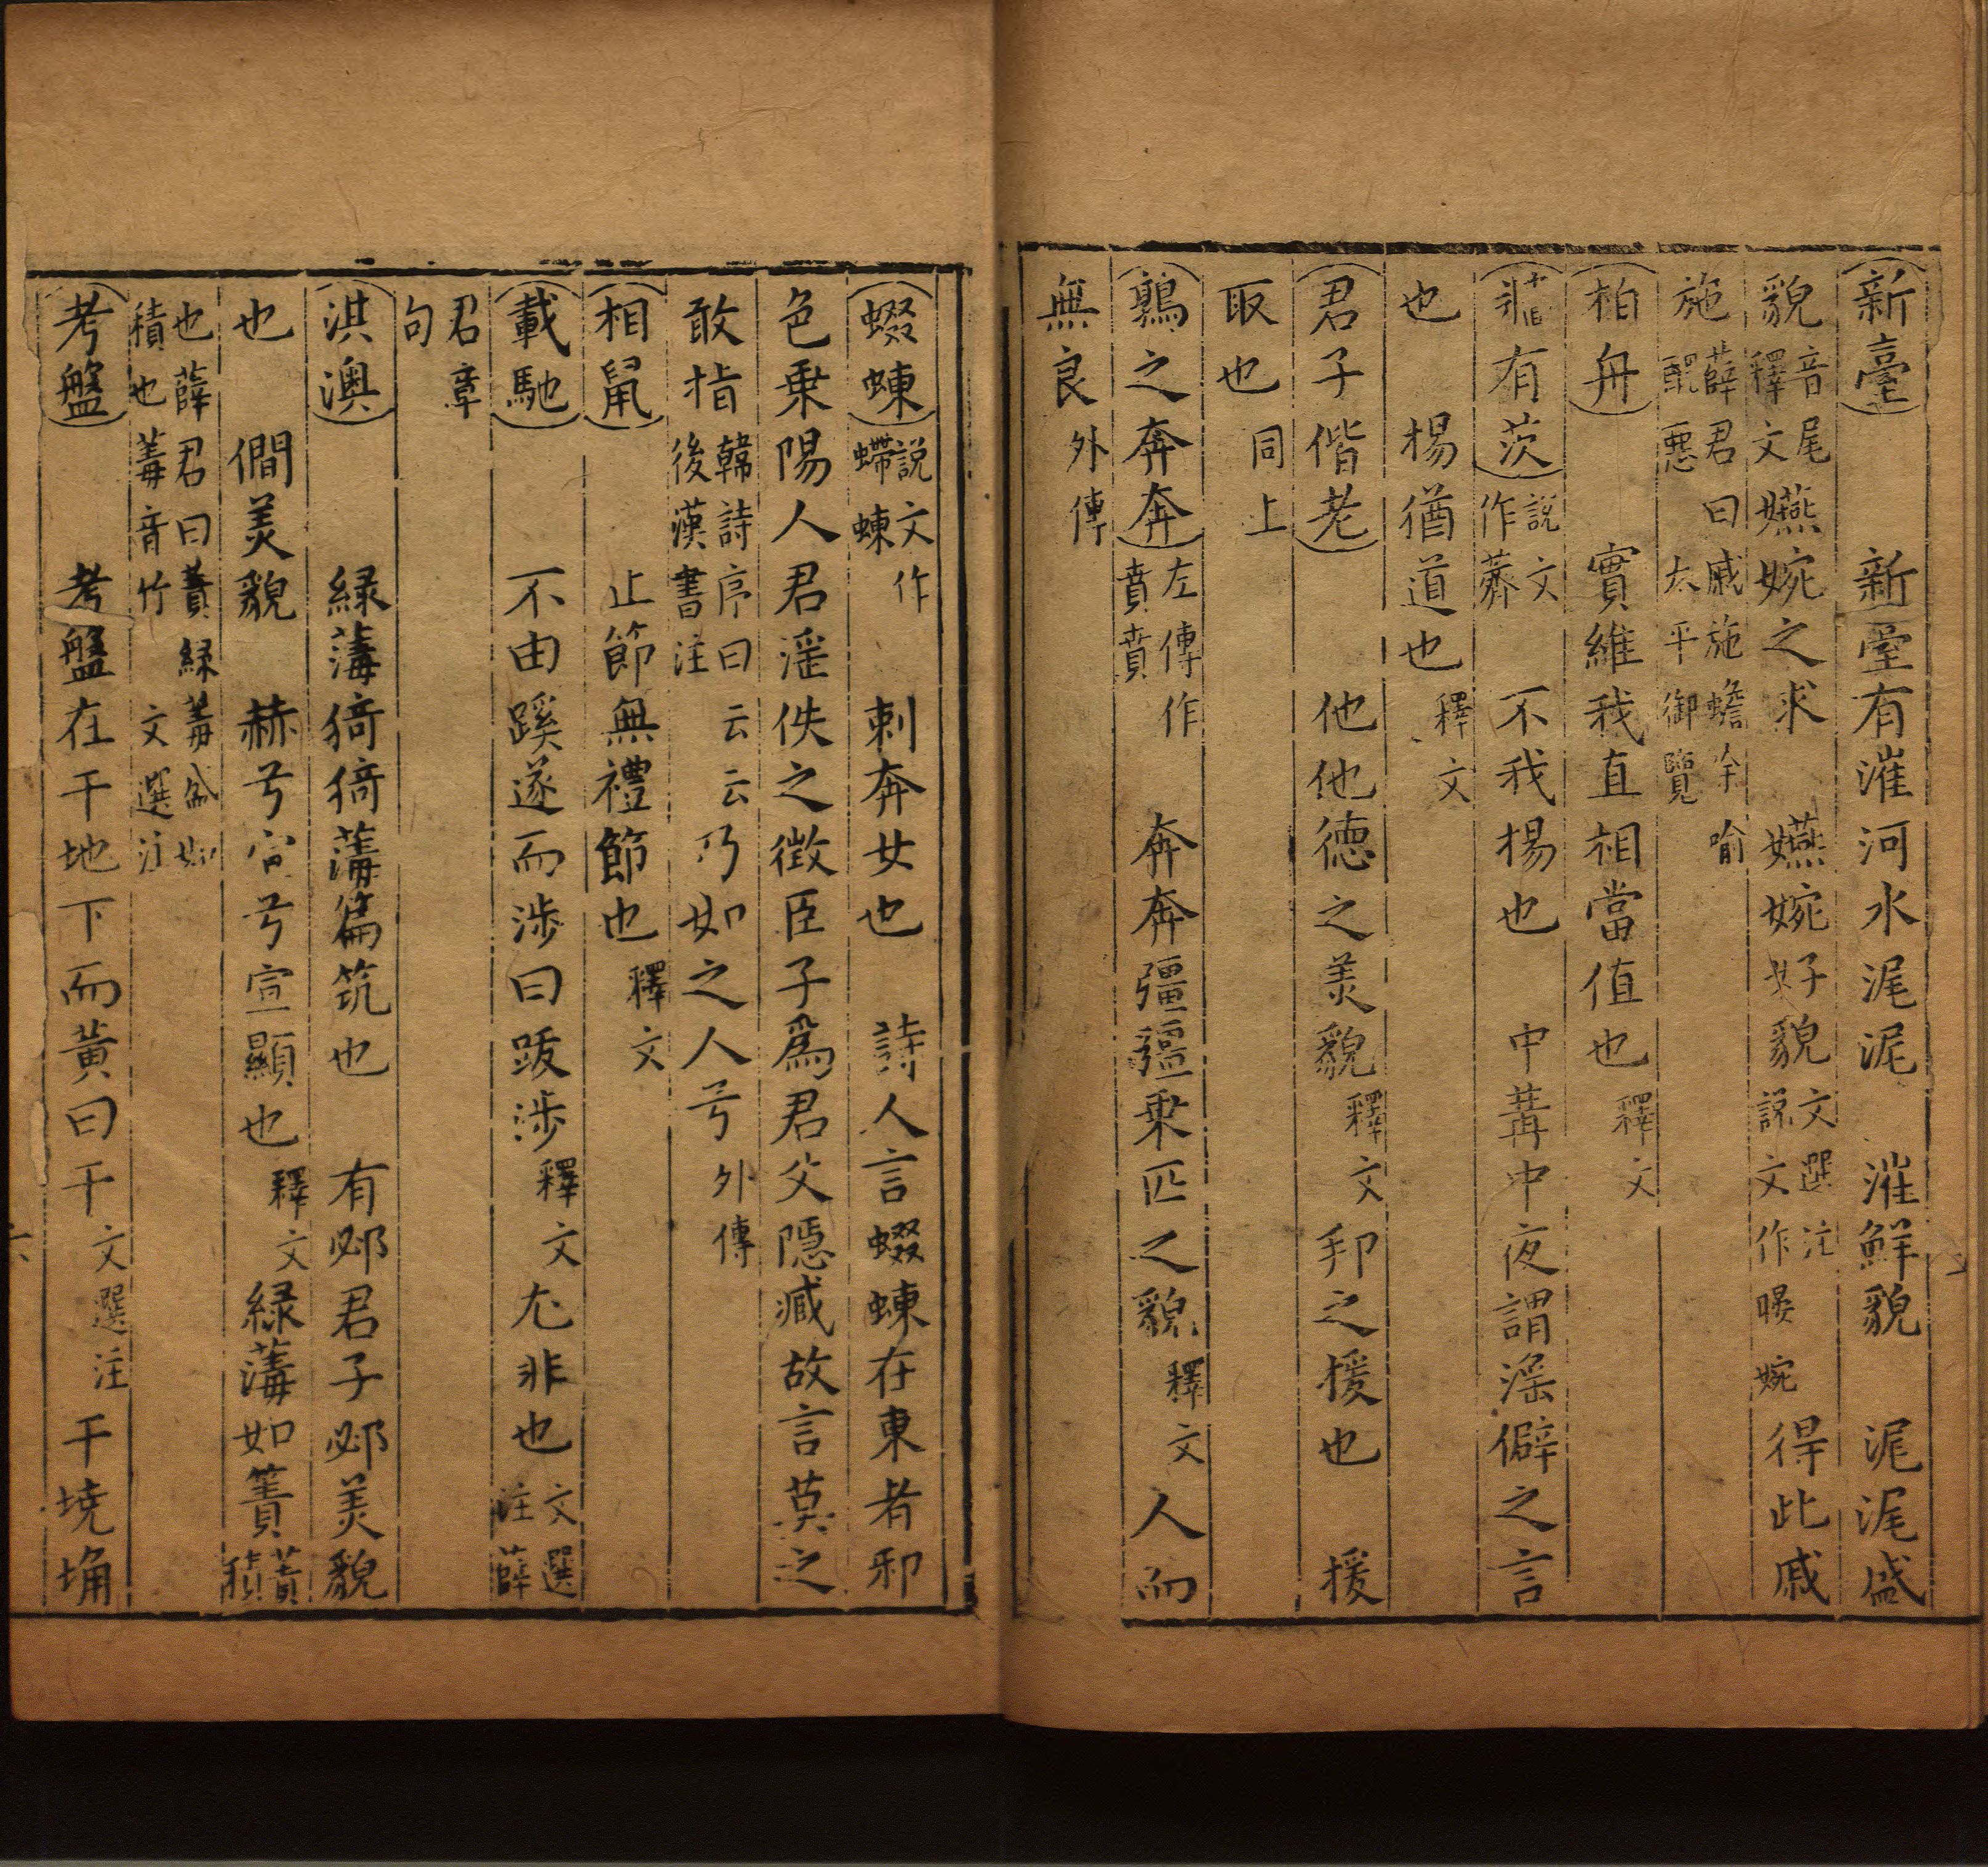 新臺 新臺有漼河水浘浘 漼鮮貌 浘浘盛
貌音尾釋文嬿婉之求 嬿婉好貌文選注說文作暥婉得此戚
施薛君曰戚施蟾蜍喻醜惡太平御覽
柏舟 實維我直相當值也釋文
牆有茨說文作薺 不我揚也 中冓中夜謂淫僻之言
也 揚猶道也釋文
君子偕老 他他德之美貌釋文邦之援也 援
取也同上
鶉之奔奔左傳作賁賁 奔奔彊彊乗匹之貌釋文人而
無良外傳
蝃蝀說文作螮蝀 刺奔女也 詩人言蝃蝀在東者邪
色乗陽人君淫佚之徵臣子爲君父隱臧故言莫之
敢指韓詩序曰云云後漢書注乃如之人兮外傳
相鼠 止節無禮節也釋文
載馳 不由蹊遂而涉曰跋涉釋文尤非也文選注薛
君章句
淇澳 緑薄猗猗薄篇筑也 有邲君子邲美貌
也 僩美貌 赫兮宣兮宣顯也釋文緑薄如簀簀積
也薛君曰簀緑薄盛如積也薄音竹 文選注
考盤 考盤在干地下而黄曰干文選注 干墝埆
六